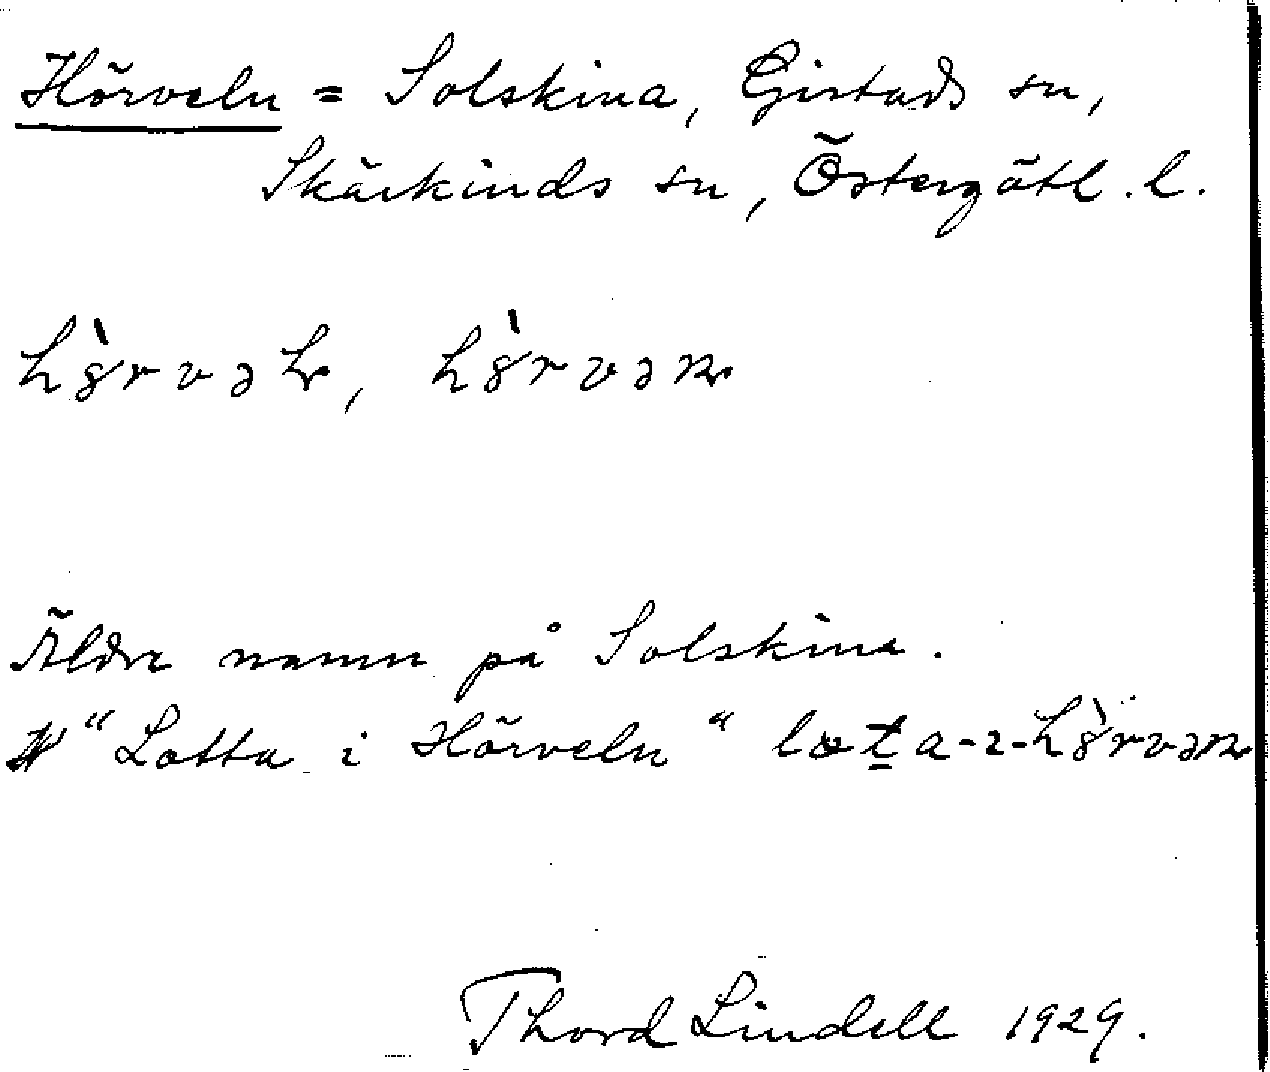 Hörveln = Solskina, Gistads sn,
Skärkinds sn, Östergötl. l.
Äldre namn på Solskina.
"Lotta i Hörveln"
Thord Lindell 1929.